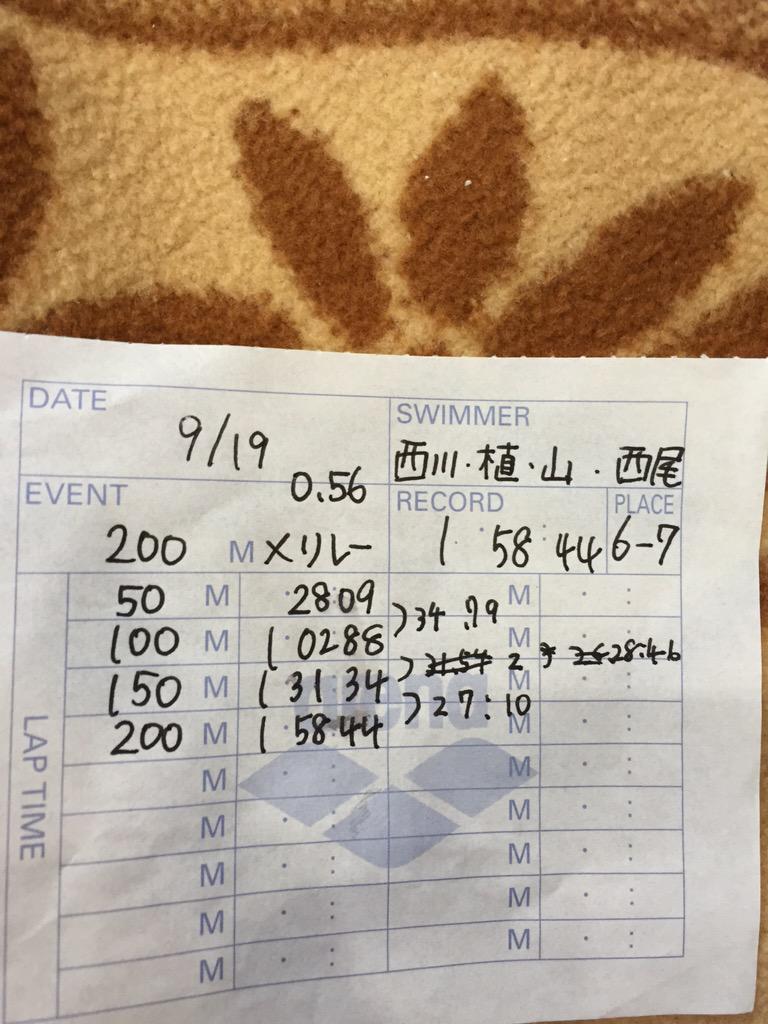 DATE
9/19
SWIMMER
西川・植・山・西尾
EVENT
0.56
200 M メリレー
RECORD
1 58 44
PLACE
6-7
LAP TIME
50 M 28:09 M
)34.79
100 M 1 0288 M
) 2 28:46
150 M 1 31 34 M
)27:10
200 M 1 58 44 M
M M
M M
M M
M M
M M
arena